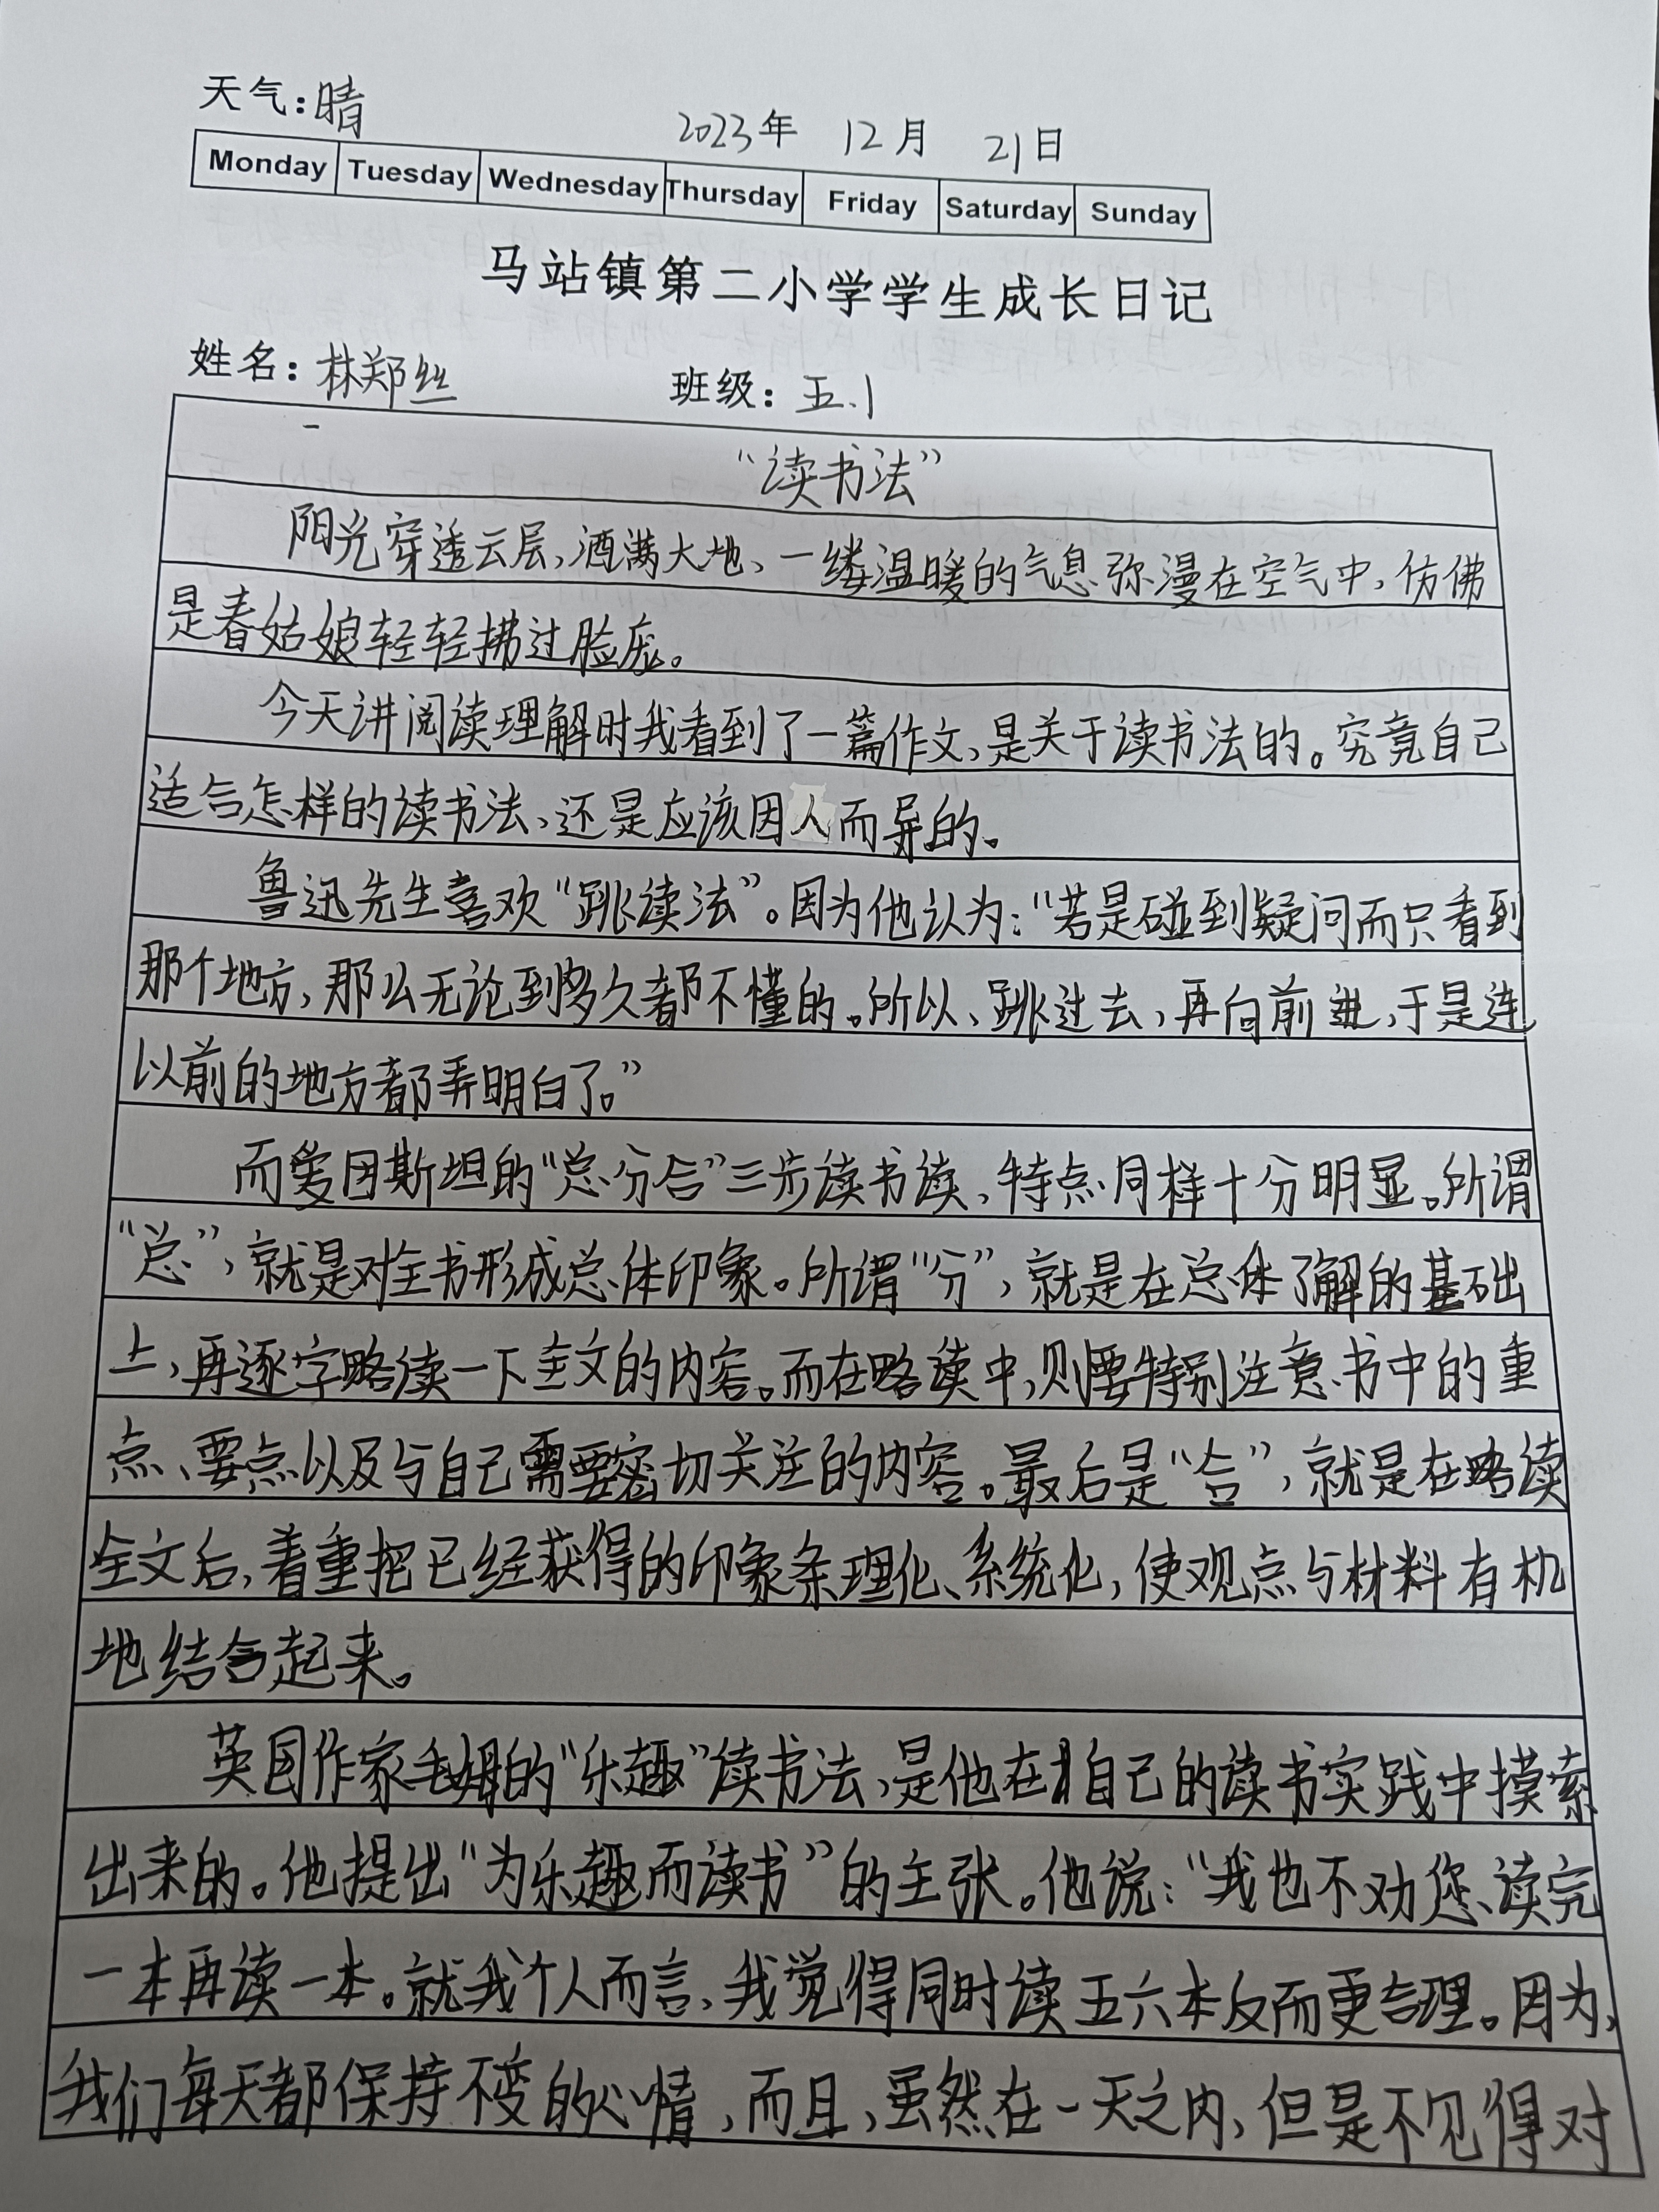 天气：晴
2023年 12月 21日
Monday Tuesday Wednesday Thursday Friday Saturday Sunday
马站镇第二小学学生成长日记
姓名：林郑丝 班级：五.1
“读书法”
阳光穿透云层，洒满大地、一缕温暖的气息弥漫在空气中，仿佛
是春姑娘轻轻拂过脸庞。
今天讲阅读理解时我看到了一篇作文，是关于读书法的。究竟自己
适合怎样的读书法，还是应该因人而异的。
鲁迅先生喜欢“跳读法”。因为他认为：“若是碰到疑问而只看到
那个地方，那么无论到多久都不懂的。所以、跳过去，再向前进，于是连
以前的地方都弄明白了。”
而爱因斯坦的“总分合”三步读书读，特点同样十分明显。所谓
“总”，就是对全书形成总体印象。所谓“分”，就是在总体了解的基础
上，再逐字略读一下全文的内容。而在略读中，则要特别注意书中的重
点、要点以及与自己需要密切关注的内容。最后是“合”，就是在略读
全文后，着重把已经获得的印象条理化、系统化，使观点与材料有机
地结合起来。
英国作家毛姆的“乐趣”读书法，是他在自己的读书实践中摸索
出来的。他提出“为乐趣而读书”的主张。他说：“我也不劝您读完
一本再读一本。就我个人而言，我觉得同时读五六本反而更合理。因为，
我们每天都保持不变的心情，而且，虽然在一天之内，但是不见得对